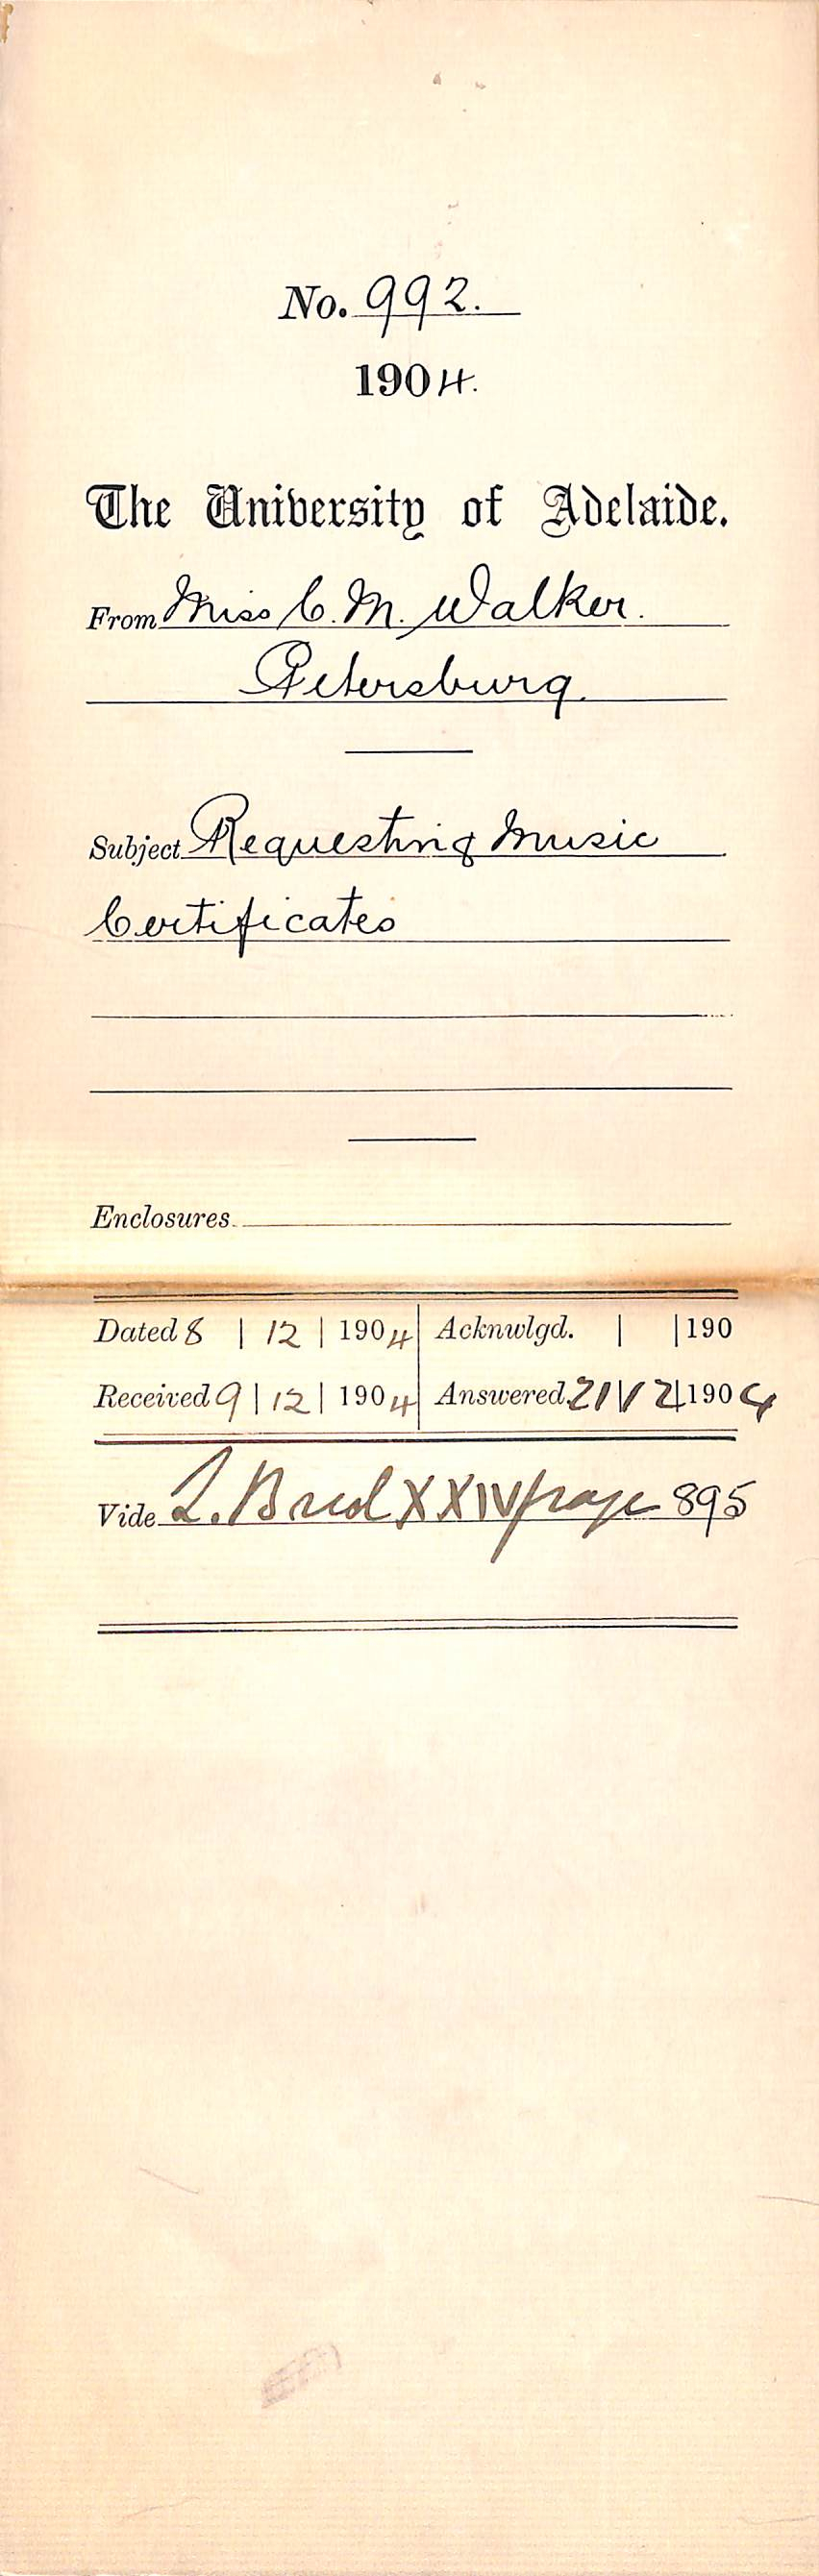 No. 992.
1904.
The University of Adelaide.
From Miss C. M. Walker.
Petersburg.
Subject Requesting Music
Certificates
Enclosures
Dated 8 | 12 | 1904 Acknwlgd. | | 190
Received 9 | 12 | 1904 Answered 21 | 12 | 1904
Vide L. XXIV page 895